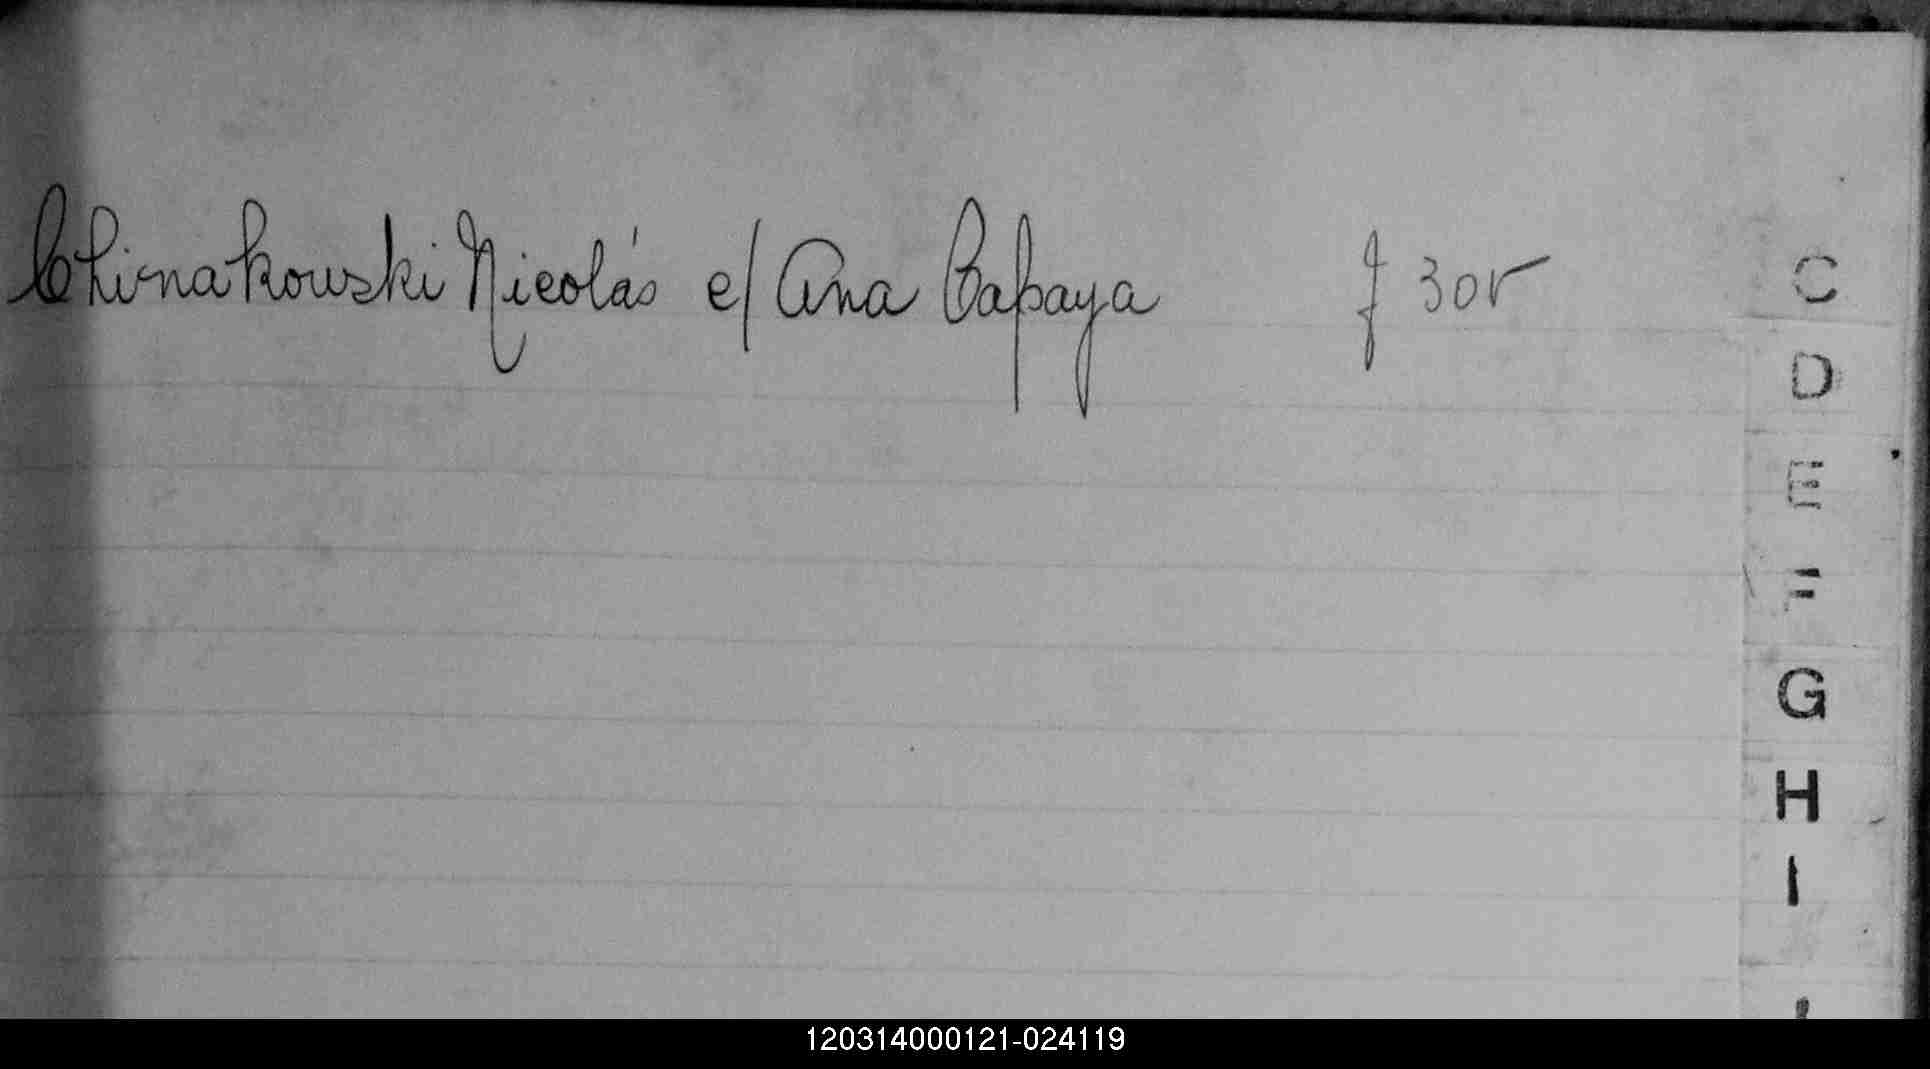 Chirnakowski Nicolás c/ Ana Capaya f 305
C
D
E
F
G
H
I
120314000121-024119